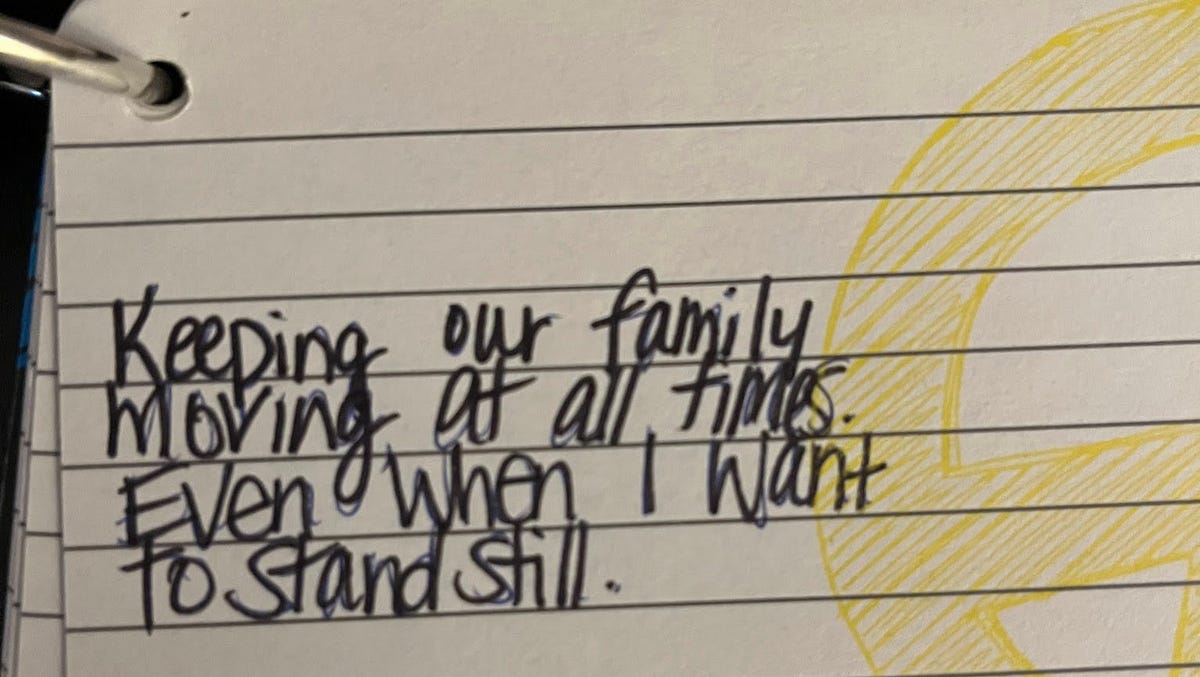 Keeping our family
moving at all times.
Even when I want
to stand still.